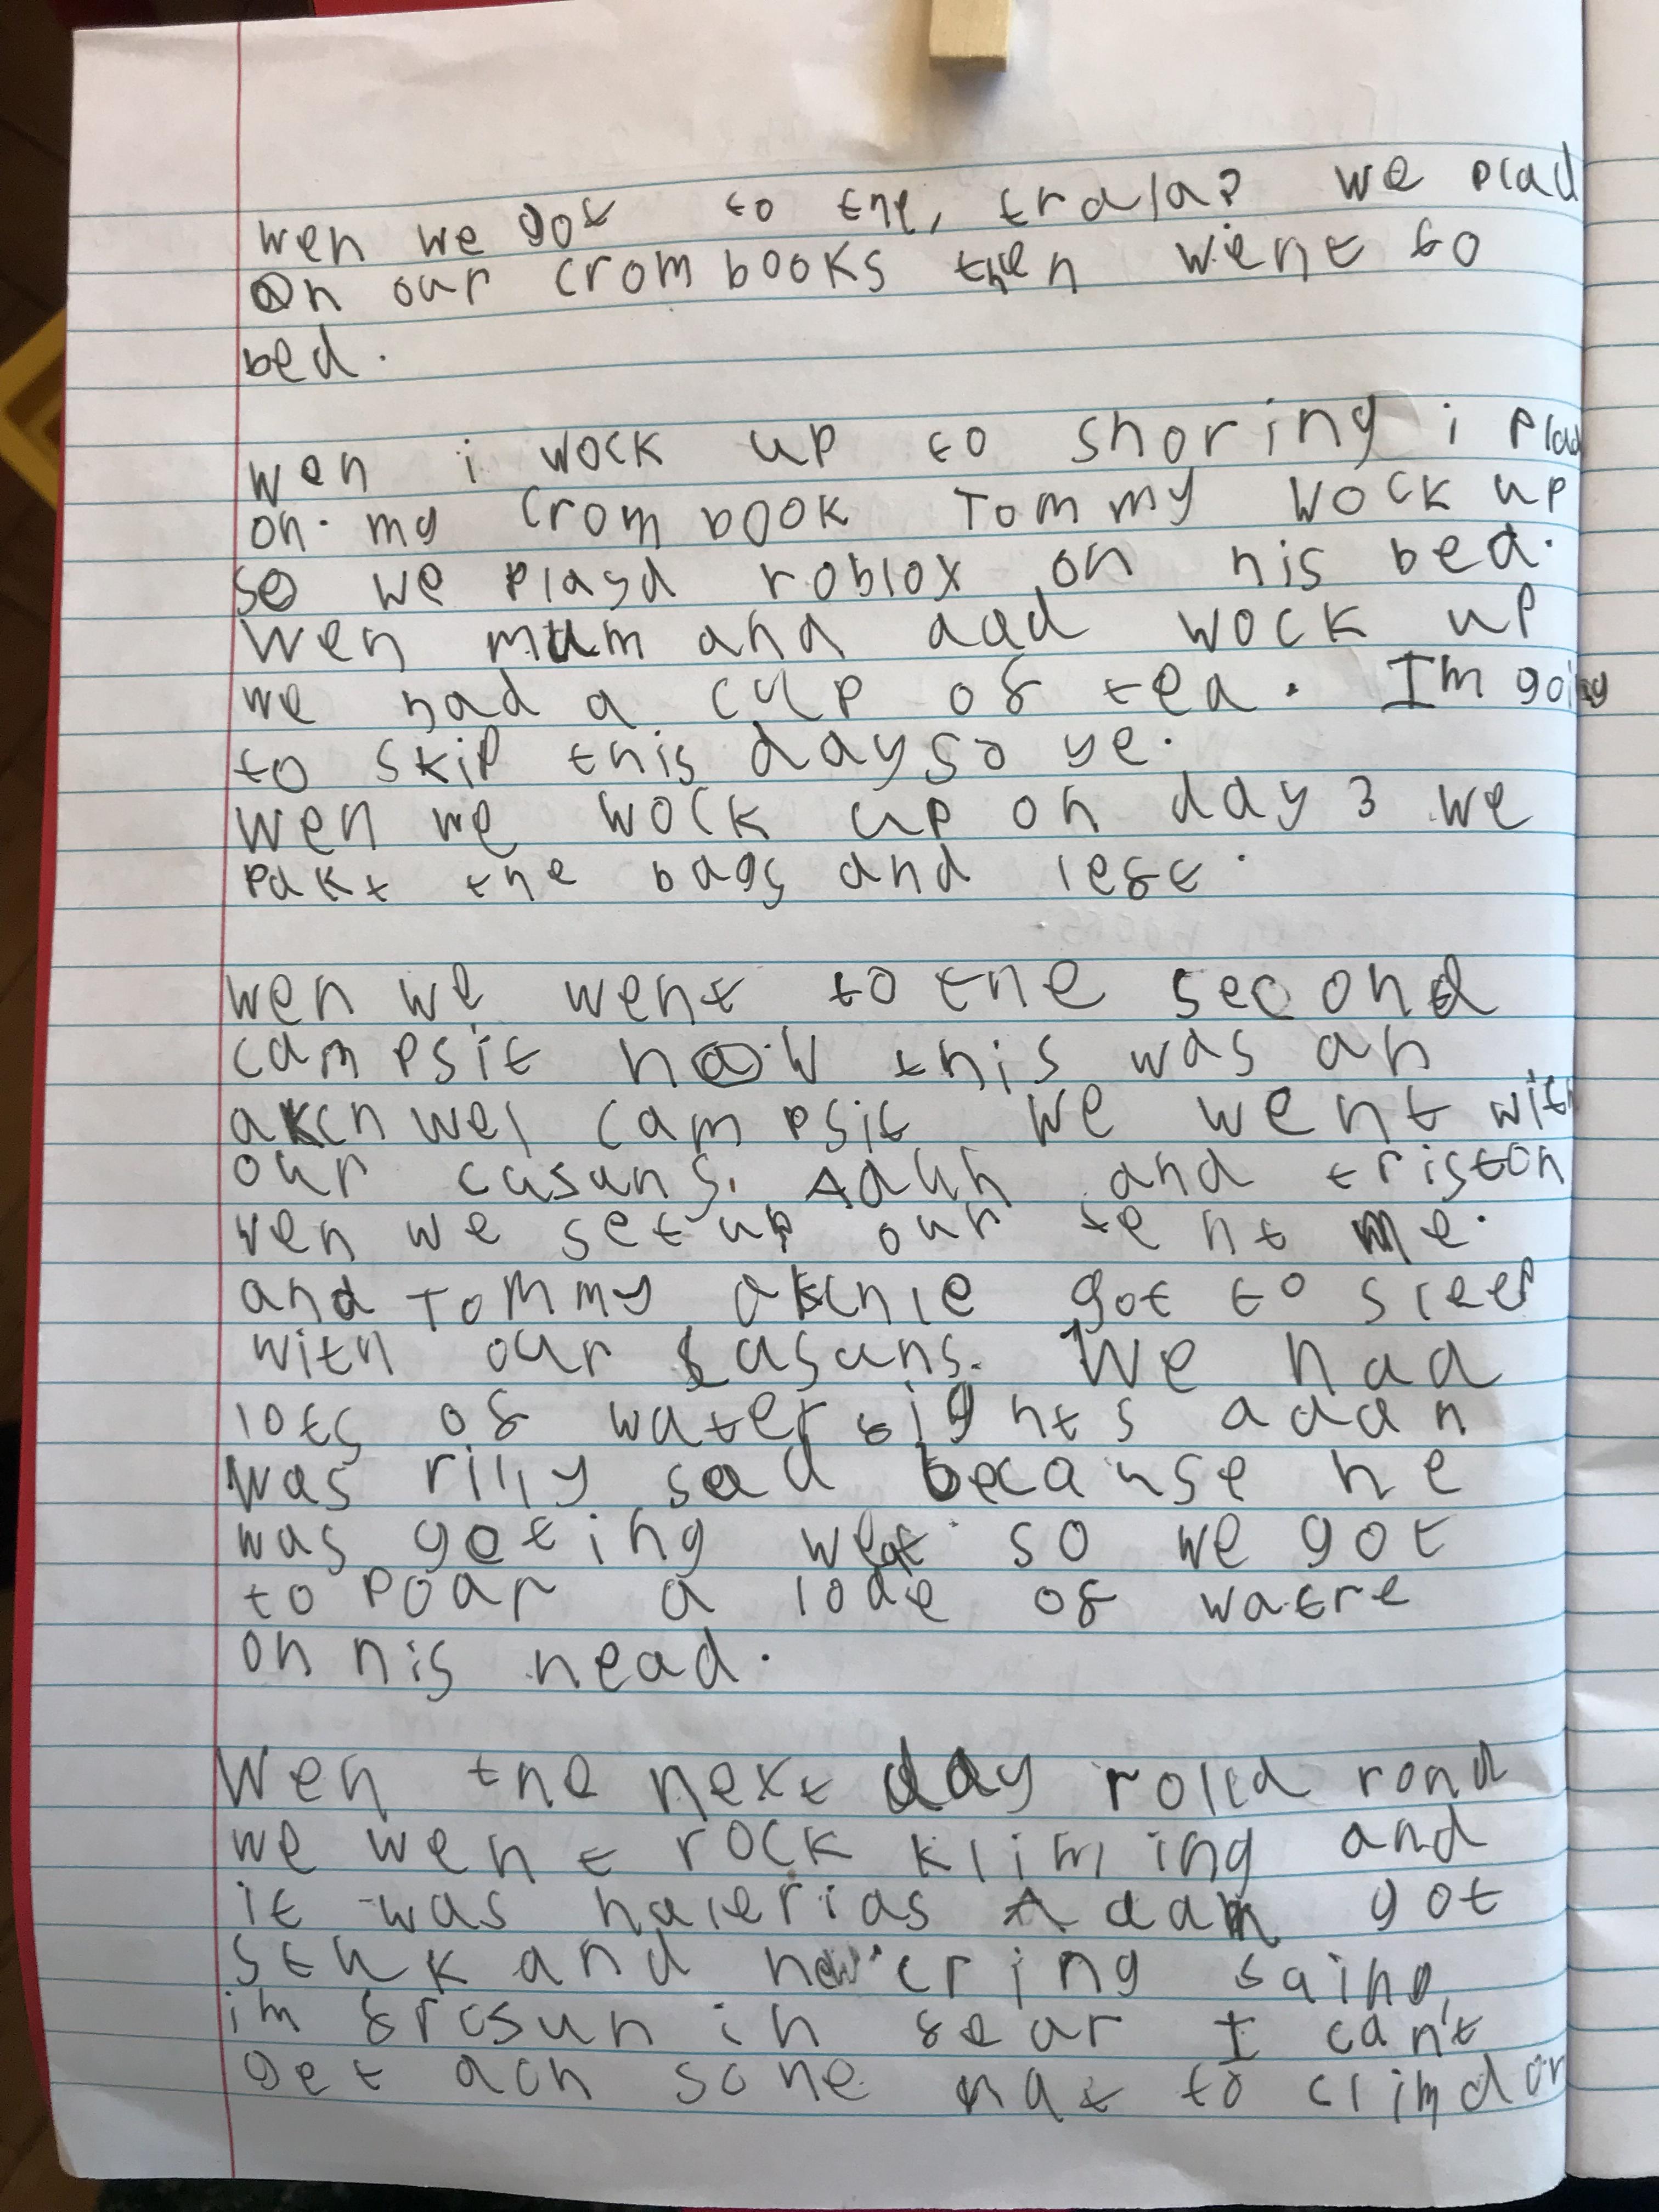 wen we got to the, trala? we plad
on our crombooks then went to
bed.
wen i wock up to snoring i plad
on. my crombook Tommy wock up
so we playd roblox on his bed.
wen mum and dad wock up
we had a cup of tea. I'm going
to skip this day so ye.
wen we wock up on day 3 we
pakt the bags and left.
wen we went to the second
campsit now this was an
akchwel campsit we went with
our casuns. Aduh and triston
wen we set up our tent me.
and Tommy akchle got to sleep
with our casuns. We had
lots of water fights adan
was rilly sad because he
was goting wet so we got
to poar a lode of watre
on his head.
Wen the next day rolld rond
we went rock kliming and
it was halerias Adam got
stuk and hew cring saing
im frosun in fear I can't
get don sone hat to clim don